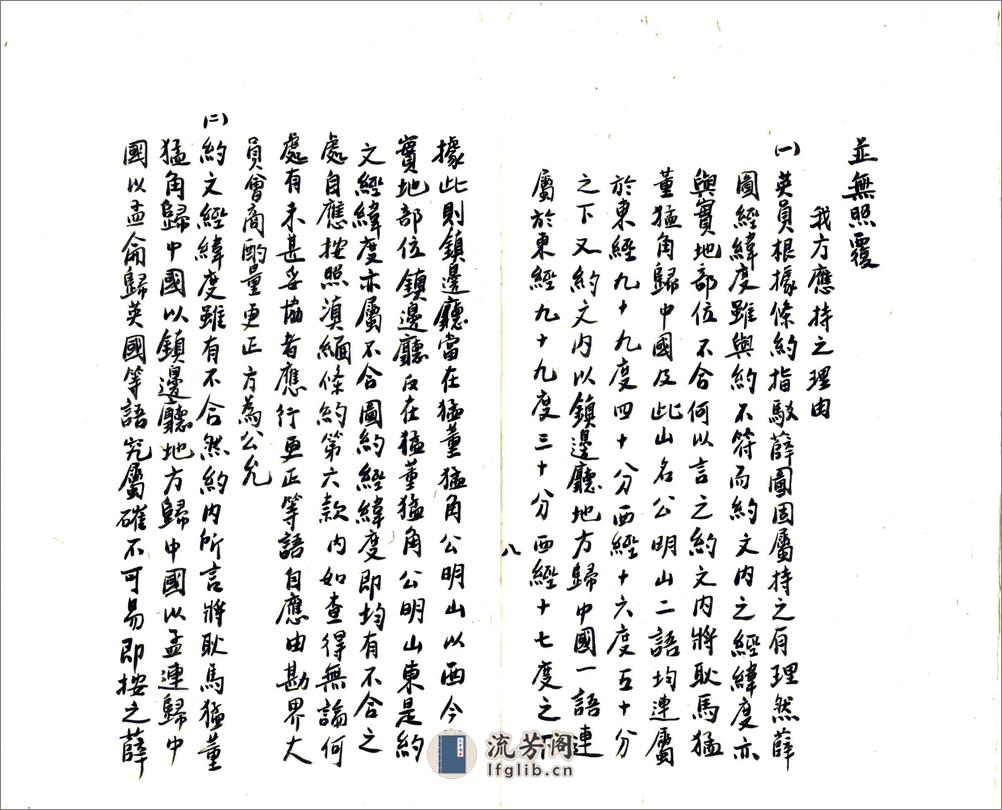 並無照覆
我方應持之理由
(一)英員根據條約指駮薛圖固屬持之有理然薛
圖經緯度雖與約不符而約文內之經緯度亦
與實地部位不合何以言之約文內將耿馬猛
董猛角歸中國及此山名公明山二語均連屬
於東經九十九度四十分西經十六度五十分
之下又約文內以鎮邊廳地方歸中國一語連
屬於東經九十九度三十分西經十七度之下
八
據此則鎮邊廳當在猛董猛角公明山以西今
實地部位鎮邊廳反在猛董猛角公明山東是約
文經緯度亦屬不合圖約經緯度即均有不合之
處自應按照滇緬條約第六款內如查得無論何
處有未甚妥協者應行更正等語自應由勘界大
員會商酌量更正方為公允
(二)約文經緯度雖有不合然約內所言將耿馬猛董
猛角歸中國以鎮邊廳地方歸中國以孟連歸中
國以孟侖歸英國等語究屬確不可易即按之薛
流芳阁
lfglib.cn